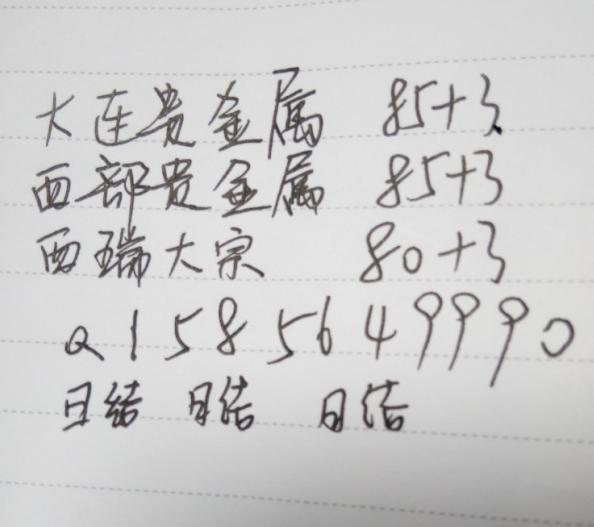 大连贵金属 85+3
西部贵金属 85+3
西瑞大宗 80+3
Q1585649990
日结 日结 日结